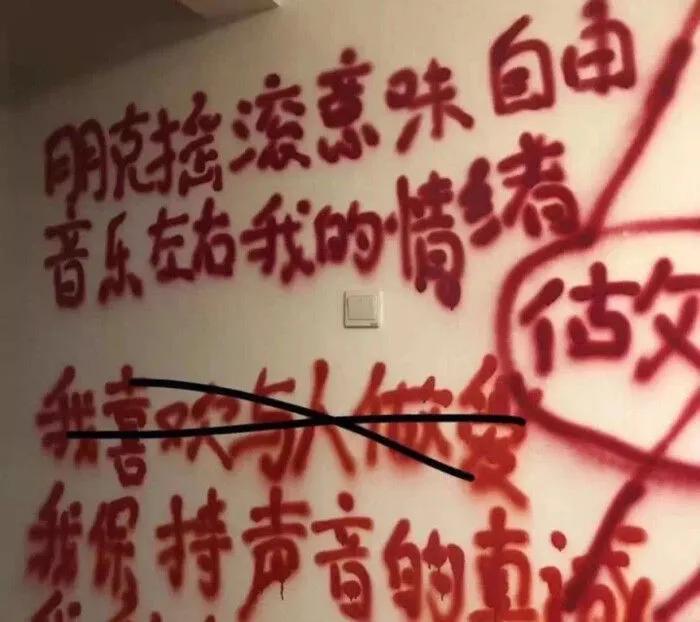 朋克摇滚意味自由
音乐左右我的情绪
做
我喜欢与人做爱
我保持声音的真诚
我